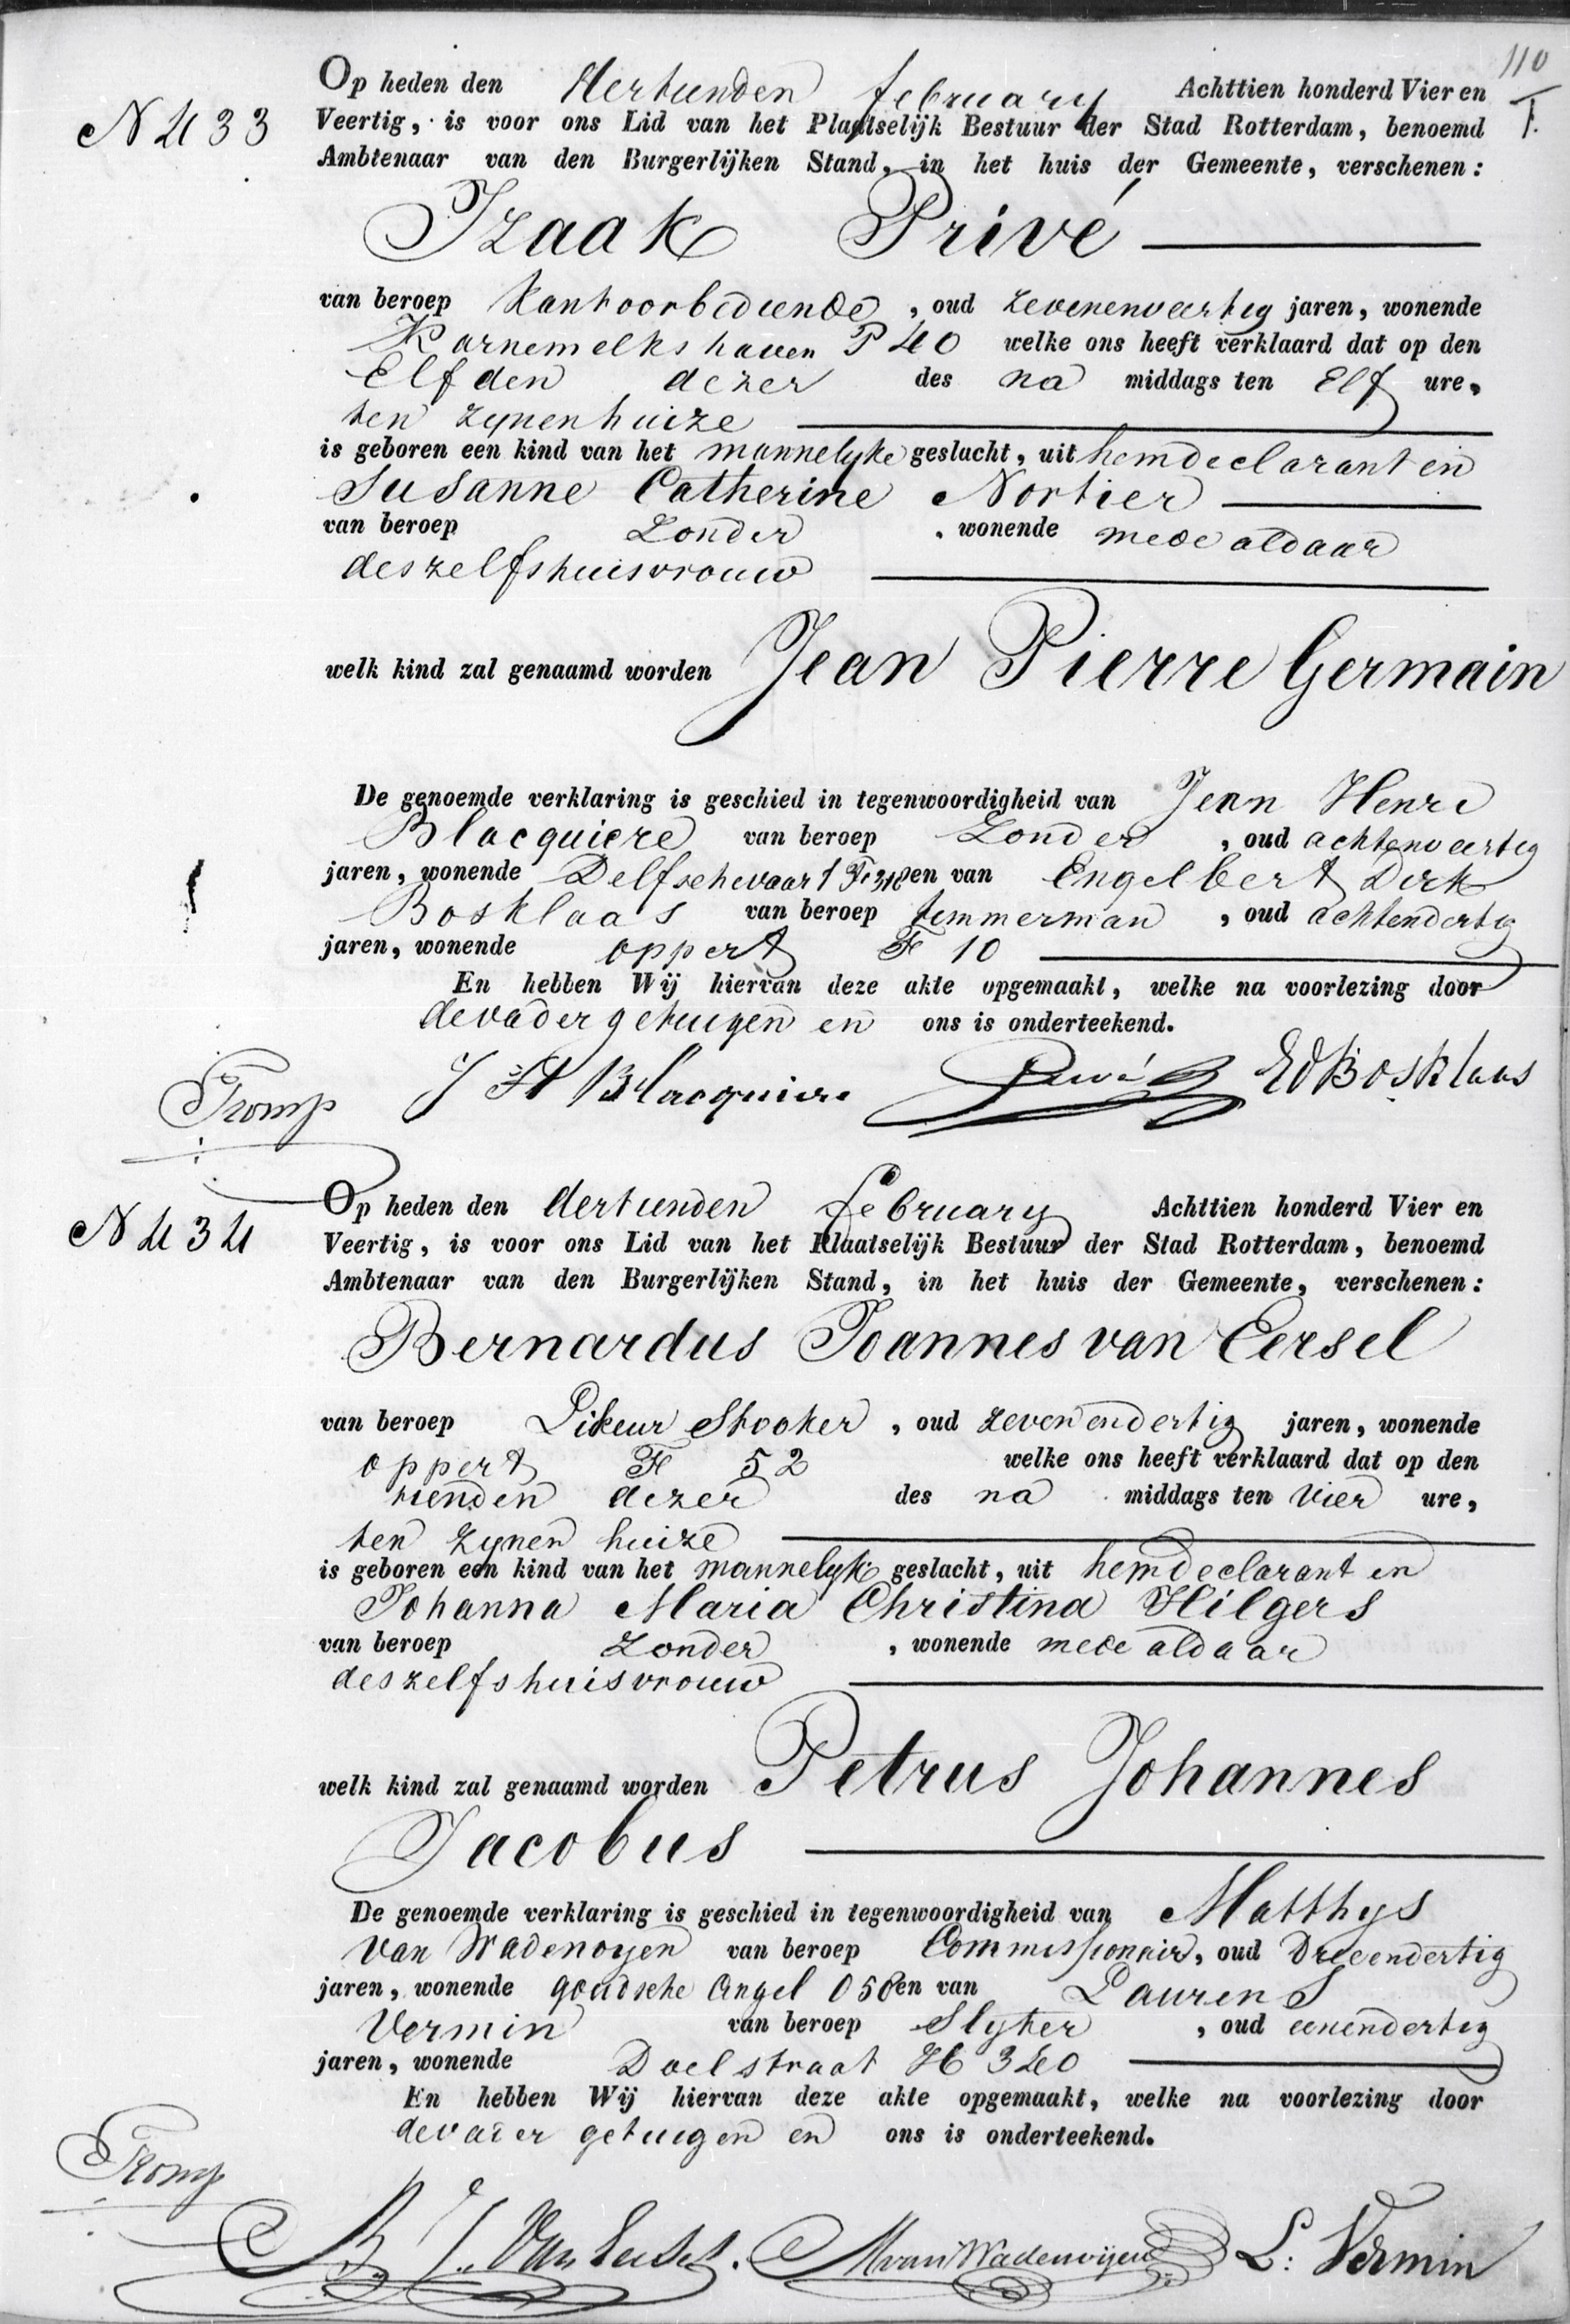 110
F.
N 433
Op heden den dertienden february Achttien honderd Vier en
Veertig, is voor ons Lid van het Plaatselijk Bestuur der Stad Rotterdam, benoemd
Ambtenaar van den Burgerlijken Stand, in het huis der Gemeente, verschenen:
Izaak Privé
van beroep kantoorbediende, oud zevenenveertig jaren, wonende
Karnemelkshaven P 40 welke ons heeft verklaard dat op den
Elfden dezer des na middags ten Elf ure,
ten zynen huize
is geboren een kind van het mannelyke geslacht, uit hem declarant en
Susanne Catherine Nortier
van beroep Zonder, wonende mede aldaar
deszelfs huisvrouw
welk kind zal genaamd worden Jean Pierre Germain
De genoemde verklaring is geschied in tegenwoordigheid van Jean Henri
Blacquiere van beroep Zonder, oud achtenveertig
jaren, wonende Delfschevaart F 318 en van Engelbert Dirk
Bosklaas van beroep timmerman, oud achtendertig
jaren, wonende oppert F 10
En hebben Wij hiervan deze akte opgemaakt, welke na voorlezing door
de vader getuigen en ons is onderteekend.
Tromp J H Blacquiere Privé ED Bosklaas
N 434
Op heden den dertienden february Achttien honderd Vier en
Veertig, is voor ons Lid van het Plaatselijk Bestuur der Stad Rotterdam, benoemd
Ambtenaar van den Burgerlijken Stand, in het huis der Gemeente, verschenen:
Bernardus Joannes van Eersel
van beroep Likeur Stooker, oud zevenendertig jaren, wonende
oppert F 52 welke ons heeft verklaard dat op den
tienden dezer des na middags ten vier ure,
ten zynen huize
is geboren een kind van het mannelyk geslacht, uit hem declarant en
Johanna Maria Christina Hilgers
van beroep Zonder, wonende mede aldaar
deszelfs huisvrouw
welk kind zal genaamd worden Petrus Johannes
Jacobus
De genoemde verklaring is geschied in tegenwoordigheid van Matthys
van Wadenoyen van beroep Commissionair, oud Drieendertig
jaren, wonende goudsche Cingel O 58 en van Laurens
Vermin van beroep Slyter, oud eenendertig
jaren, wonende Doelstraat H 340
En hebben Wij hiervan deze akte opgemaakt, welke na voorlezing door
de vader getuigen en ons is onderteekend.
Tromp
B. J. Van Eersel. M van Wadenoijen L: Vermin